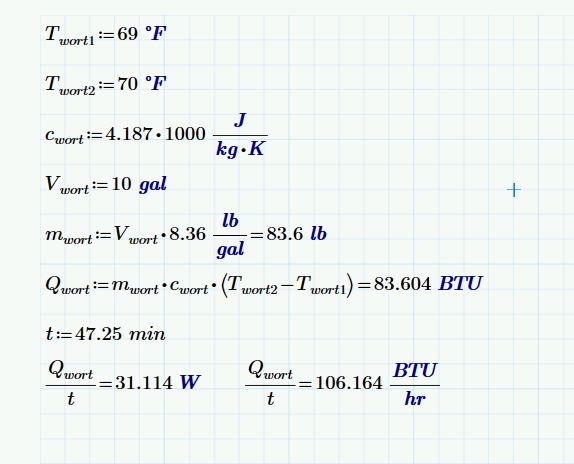 T_wort1 := 69 °F
T_wort2 := 70 °F
c_wort := 4.187 • 1000 J/(kg • K)
V_wort := 10 gal
m_wort := V_wort • 8.36 lb/gal = 83.6 lb
Q_wort := m_wort • c_wort • (T_wort2 − T_wort1) = 83.604 BTU
t := 47.25 min
Q_wort/t = 31.114 W Q_wort/t = 106.164 BTU/hr